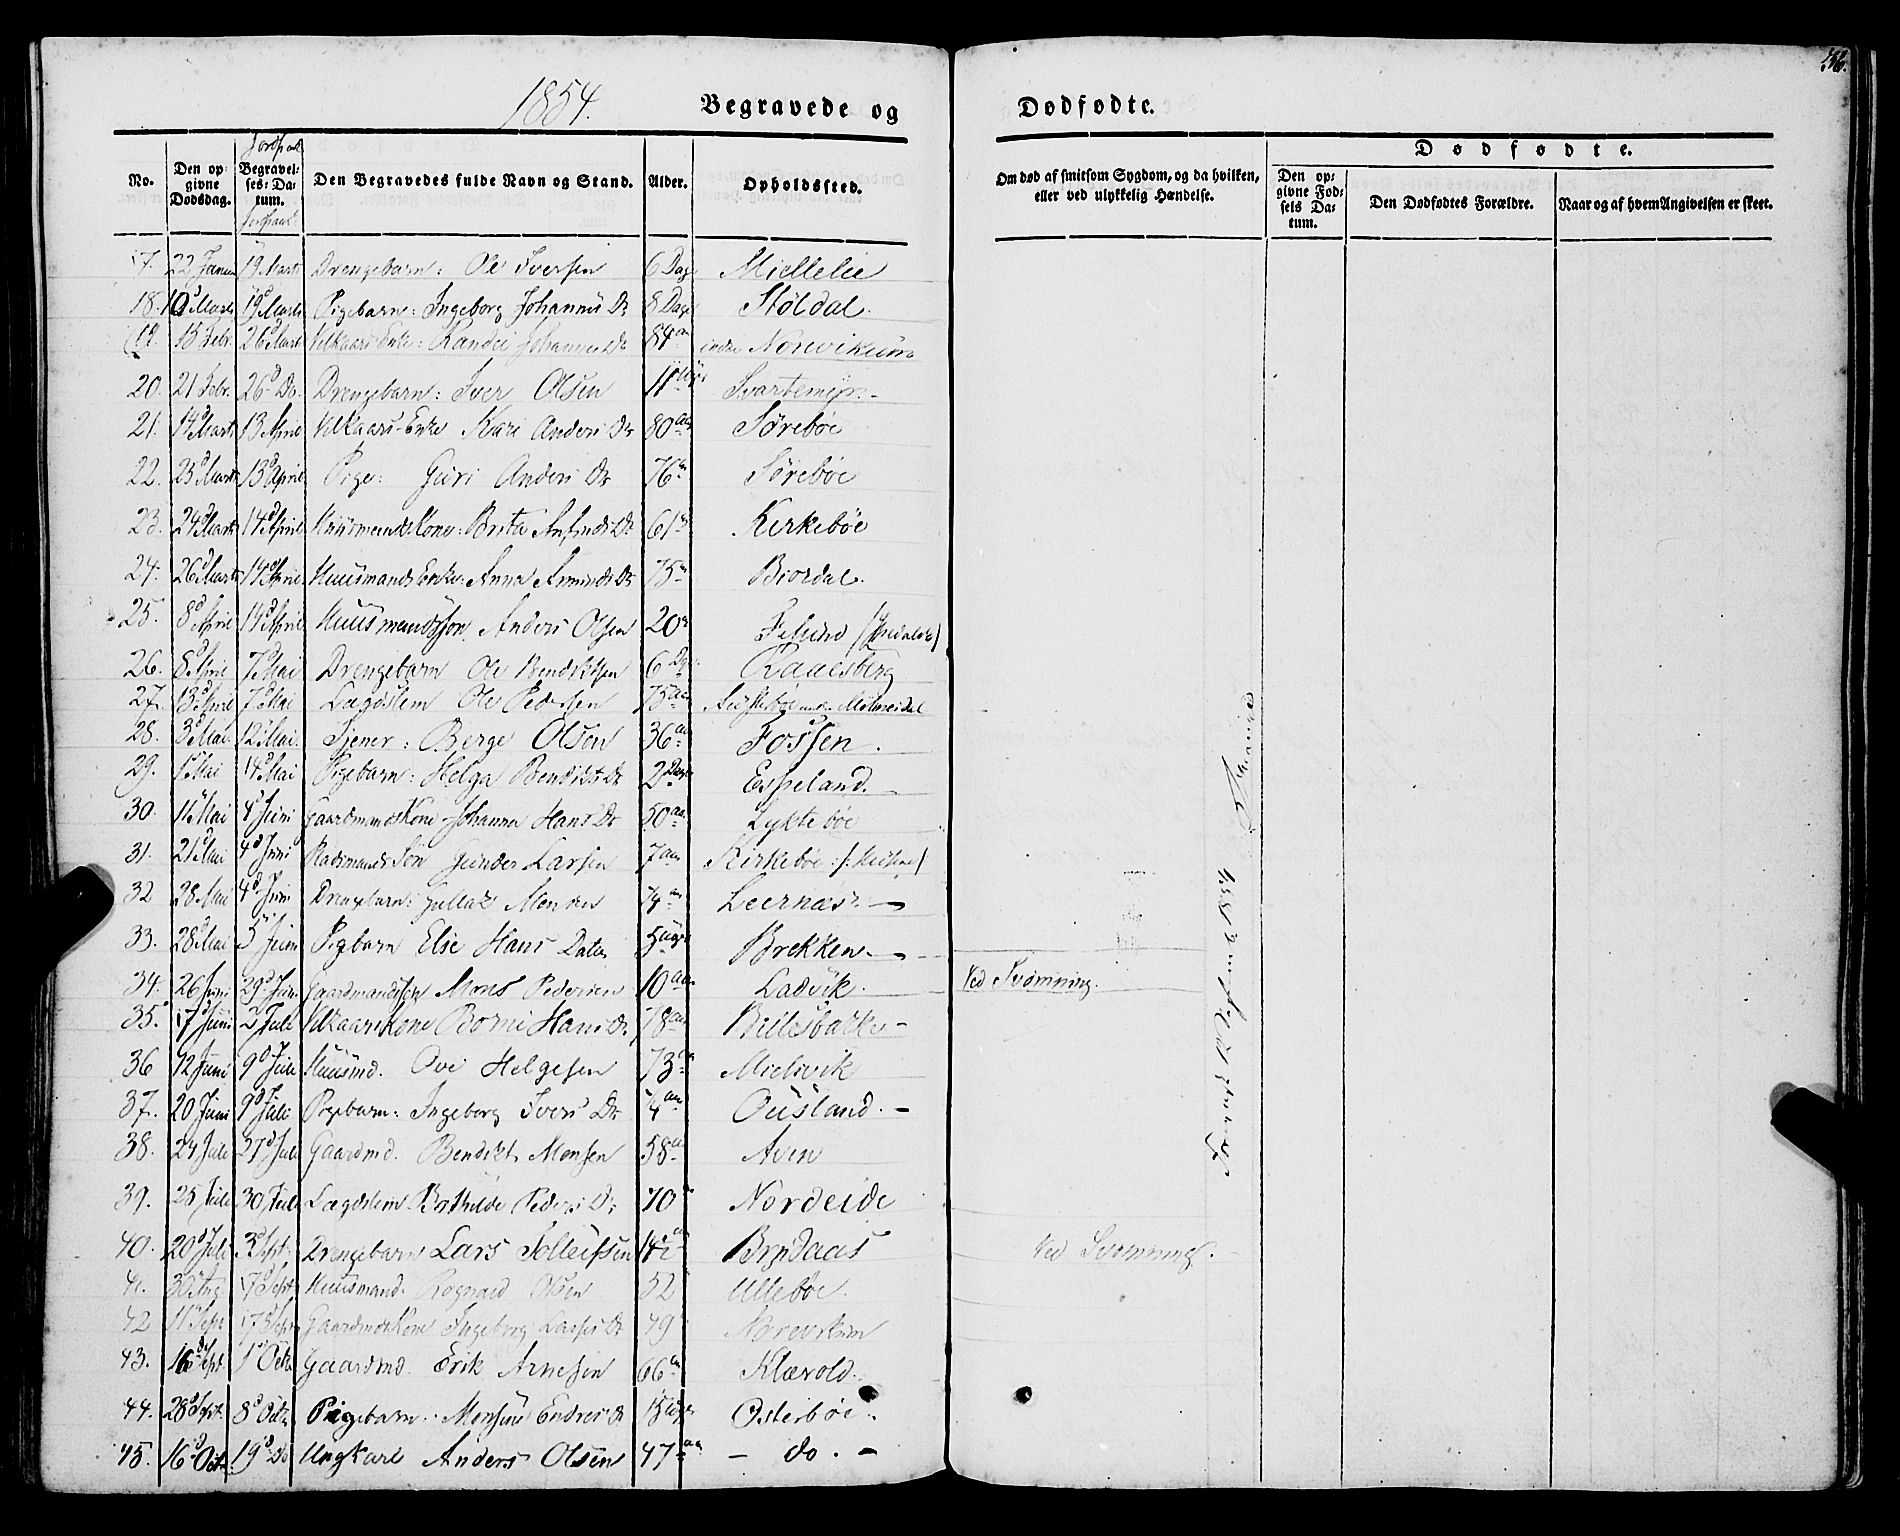 1854.
Begravede og
Dødfødte.
Jordpaak.
No.
Den op-
givne
Dødsdag.
Begravel-
ses-Da-
tum.
Den Begravedes fulde Navn og Stand.
Alder.
Opholdssted.
Om død af smitsom Sygdom, og da hvilken,
eller ved ulykkelig Hændelse.
Dødfødte.
Den op-
givne Fød-
sels Da-
tum.
Den Dødfødtes Forældre.
Naar og af hvem Angivelsen er skeet.
17. 22 Januar 19 Marts Drengebarn: Ole Iversen 6 Dage Miellelie
18. 10 Marts 19 Marts Pigebarn: Ingeborg Johannes Dr 8 Dage Støldal.
19. 15 Febr. 26 Marts Vilkaars Enke: Randi Johannes Dr 84 aar indre Norevikum
20. 21 Febr. 26 Do. Drengebarn: Iver Olsen 11 Uger Svartemyr.
21. 14 Marts 13 April Vilkaars-Enke Kari Anders Dr 80 aar Sørebøe
22. 25 Marts 13 April Pige: Guri Anders Dr 76 Sørebøe
23. 24 Marts 14 April Huusmands Kone: Brita Anfinds Dr 61 Kirkebøe
24. 26 Marts 14 April Huusmands Enke: Anna Amunds Dr 75 Biordal.
25. 8 April 14 April Huusmandssøn Anders Olsen 20
26. 8 April 7 Mai Drengebarn Ole Bendiktsen 6 Dge Raaesberg
27. 13 April 7 Mai Lægdslem Ole Pedersen 75 aar
28. 3 Mai 12 Mai. Tjener: Berge Olsen 36 aar Fossen.
29. 1 Mai 14 Mai Pigebarn: Helga Bendikts Dr 2 Dage Espeland.
30. 11 Mai 4 Juni Gaardmands Kone Johanna Hans Dr 50 aar Lyktebøe
31. 21 Mai 4 Juni Pladsmands Søn Gunder Larsen 7 aar Kirkebøe
32 28 Mai 4 Juni Drengebarn: Gullak Monsen 1/4 aar Leernæs.
33. 28 Mai 5 Juni Pigebarn Else Hans Datter 5 Uger Brekken.
34. 26 Juni 29 Juni Gaardmandssøn Mons Pedersen 10 aar Ladvik. Ved Svømning.
35. 17 Juni 2 Juli Vilkaarskone Borni Hans Dr 78 aar
36 12 Juni 9 Juli Huusmd. Ove Helgesen 73 Mielsvik
37. 20 Juni 9 Juli Pigebarn: Ingeborg Ivers Dr 1/4 aar Ousland.
38. 24 Juli 27 Juli Gaardmd. Bendikt Monsen 58 aar Aven
39. 25 Juli 30 Juli Lægdslem Bothilde Peders Dr 70 Nordeide
40. 20 Juli 3 Sept. Drengebarn Lars Tolleifsen Brydaas Ved Svømning.
41. 30 Aug. 17 Sept Huusmand. Rognald Olsen 52 Ullebøe.
42 11 Sept 17 Sept Gaardmds Kone Ingeborg Lasses Dr 49 Norevikum
43. 16 Sept. 1 Octb Gaardmd. Erik Arnesen 66 Klævold.
44. 28 Sept. 8 Octb. Pigebarn: Monsine Endres Dr 15 Uger Østerbøe.
45. 16 Oct. 19 Do Ungkarl Anders Olsen 47 aar - do. -